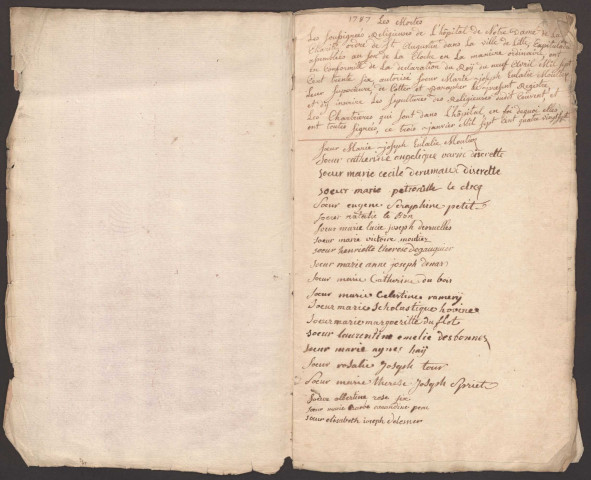 1787 Les Mortes
Les soussignées Religieuses de L'hôpital de Notre Dame de la
Charité ordre de St Augustin dans la ville de Lille, Capitulairement
assemblées au son de la Cloche en la maniere ordinaire, ont
en Conformité de la déclaration du Roy du neuf avril Mil sept
Cent trente six, autorisé Soeur Marie joseph Eulalie
Leur Supérieure, de Cotter et Parapher le présent Registre
inscrire Les Sépultures des Religieuses dudit Couvent, et
Les qui sont dans L'hôpital en foi de quoi elles
ont toutes signées, ce trois janvier Mil sept Cent quatre vingt sept
Sœur Marie joseph Eulalie
Soeur catherine angelique discrette
soeur marie cecile derumaux discrette
soeur marie petronille le clerq
Soeur eugene Seraphine petit
soeur natalie le
soeur marie lucie joseph deruelles
soeur marie victoire
soeur henriette therese
soeur marie anne joseph
Soeur marie Catherine du bois
Soeur marie Celestine ramery
Soeur marie Scholastique hovine
Soeur marie margueritte du flot
soeur laurentine amelie desbonnez
soeur marie agnes haÿ
Soeur rosalie Joseph tour
Soeur marie therese Joseph Spriet
Soeur albertine rose six
soeur marie amandine
soeur elizabeth joseph delemer